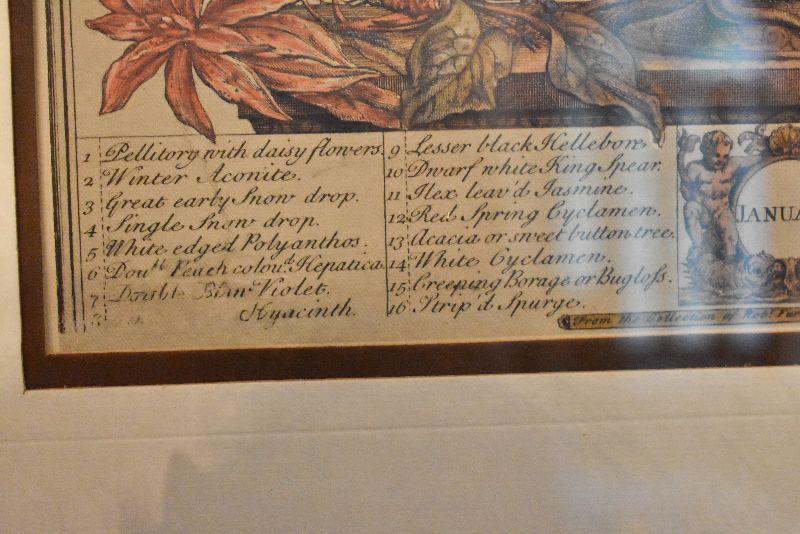 1 Pellitory with daisy flowers.
2 Winter Aconite.
3 Great early Snow drop.
4 Single Snow drop.
5 White edged Polyanthos.
6 Doubl Peach colour'd Hepatica
7 Violet.
Hyacinth.
9 Lesser black Hellebore
10 Dwarf white King Spear.
11 Ilex leav'd Jasmine.
12 Red Spring Cyclamen.
13 Acacia or sweet button tree.
14 White Cyclamen.
15 Creeping Borage or Bugloss.
16 Strip'd Spurge.
JANUA
From the Collection of Robt. Fur